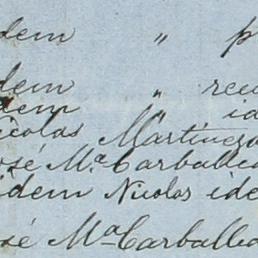 idem " p
idem " reu
idem " id
Nicolas Martinez
José Mª Carballed
idem Nicolas ide
José Mª Carballed